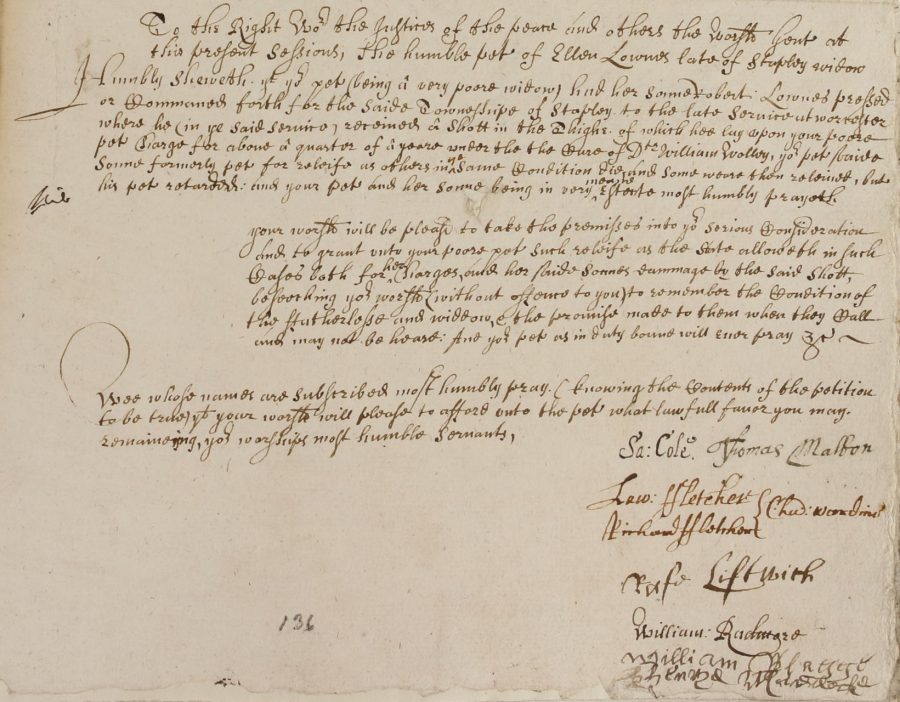 To the Right Wor the Justices of the peace and others the Worsh: bent at
this present Sessions, The humble pet of Ellen Lownes late of Stapley widow
Humbly Sheweth yt yor pet (being a very poore widow) had her sonne Robert Lownes pressed
or Commaned forth for the saide Towneshipe of Stapley to the late Service at worcester
where he (in ye said service) received a Shott in the Thighe of which hee lay upon your poore
pet Charge for aboue a quarter of a yeare under the the Cure of Dtr William Wolley, yor pet saide
Sonne formerly pet for releife as others in ye same Condition did, and some weare then releived, but
his pet retarded: and your pet and her sonne being in very meane Estate most humbly prayeth
your worsps will be pleasd to take the premisses into yor serious Consideration
and to grant unto your poore pet such releife as the State alloweth in such
Cases both for her Charges and her saide sonnes dammage by the said Shott,
beseeching yor worsps (without offence to you) to remember the Condition of
the ffatherlesse and widdow, & the promise made to them when they Call
and may not be heard: And yor pet as in duty bound will ever pray &c
Wee whose names are subscribed most humbly pray (knowing the Contents of the petition
to be true) yt your worsps will please to afford unto the pet what lawfull favor you may
remaineing, yor worships most humble servants,
Sa: Cole. Thomas Malbon
Law: ffletcher
Richard ffletcher Chu: wardins
Rafe Leftwich
William: Radmore
William
136